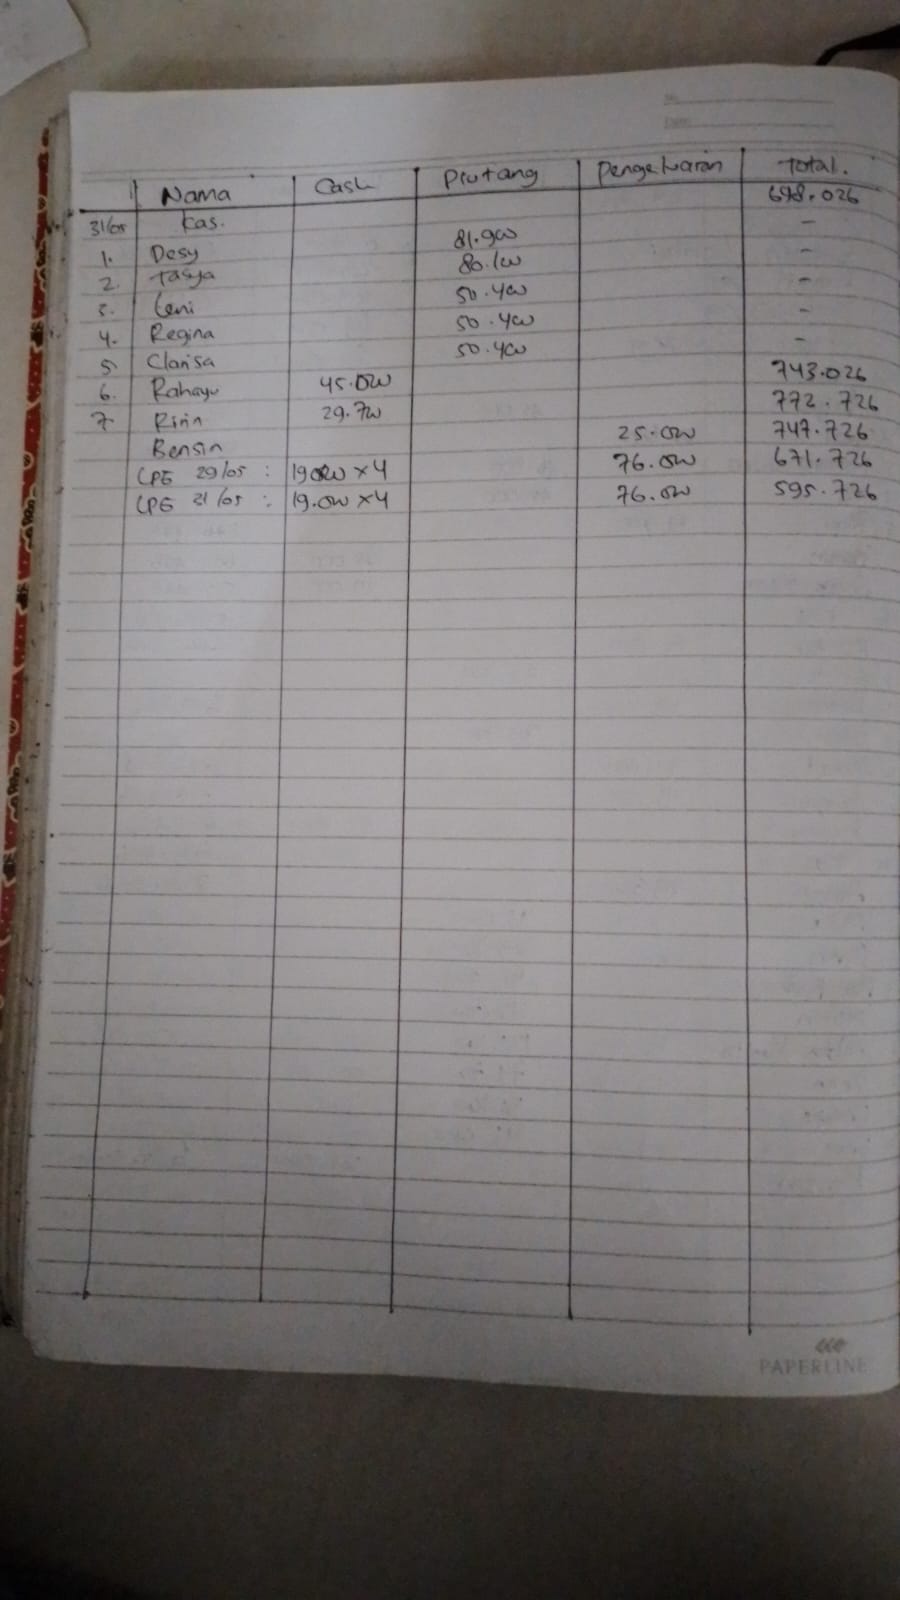 No.
Date:
Nama Cash Piutang Pengeluaran Total.
31/05 Kas. 698.026
1. Desy 81.900 -
2. Tasya 80.100 -
3. Leni 50.400 -
4. Regina 50.400 -
5 Clarisa 50.400 -
6. Rahayu 45.000 743.026
7. Ririn 29.700 772.726
Bensin 25.000 747.726
LPG 29/05 : 19.000 x 4 76.000 671.726
LPG 31/05 : 19.000 x 4 76.000 595.726
PAPERLINE